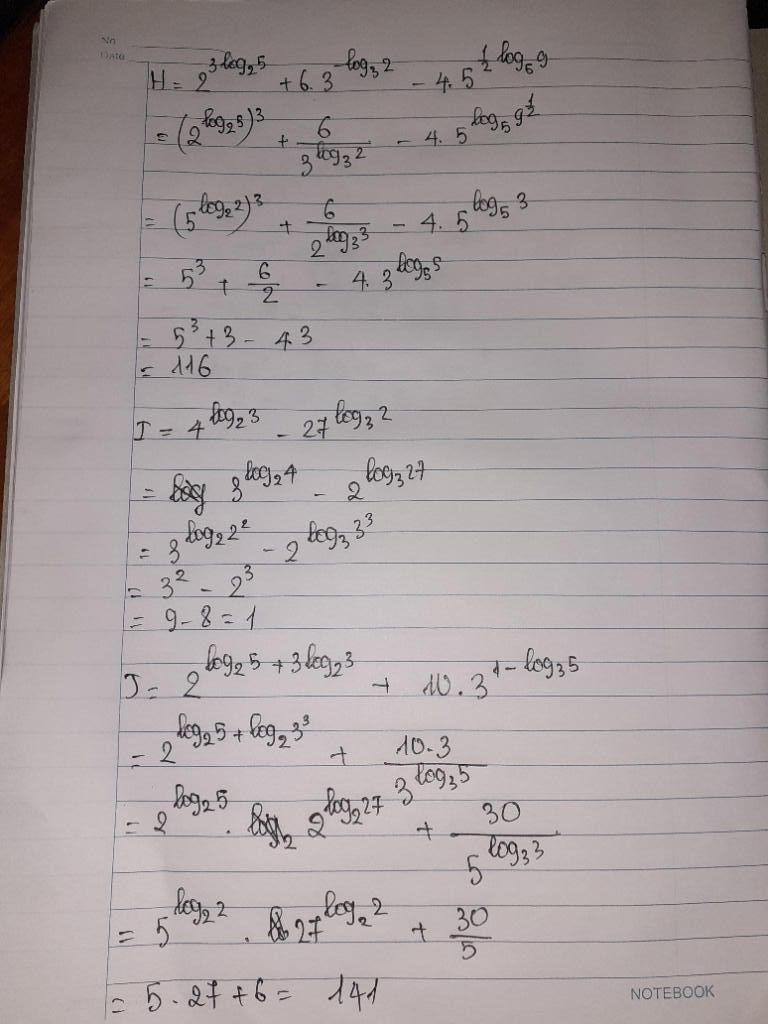 No
Date
H = 2^{3log_2 5} + 6. 3^{-log_3 2} - 4. 5^{\frac{1}{2} log_5 9}
= (2^{log_2 5})^3 + \frac{6}{3^{log_3 2}} - 4. 5^{log_5 9^{\frac{1}{2}}}
= (5^{log_2 2})^3 + \frac{6}{2^{log_3 3}} - 4. 5^{log_5 3}
= 5^3 + \frac{6}{2} - 4. 3^{log_5 5}
= 5^3 + 3 - 4.3
= 116
I = 4^{log_2 3} - 27^{log_3 2}
= 3^{log_2 4} - 2^{log_3 27}
= 3^{log_2 2^2} - 2^{log_3 3^3}
= 3^2 - 2^3
= 9 - 8 = 1
J = 2^{log_2 5 + 3log_2 3} + 10. 3^{1 - log_3 5}
= 2^{log_2 5 + log_2 3^3} + \frac{10.3}{3^{log_3 5}}
= 2^{log_2 5} . 2^{log_2 27} + \frac{30}{5^{log_3 3}}
= 5^{log_2 2} . 27^{log_2 2} + \frac{30}{5}
= 5. 27 + 6 = 141
NOTEBOOK